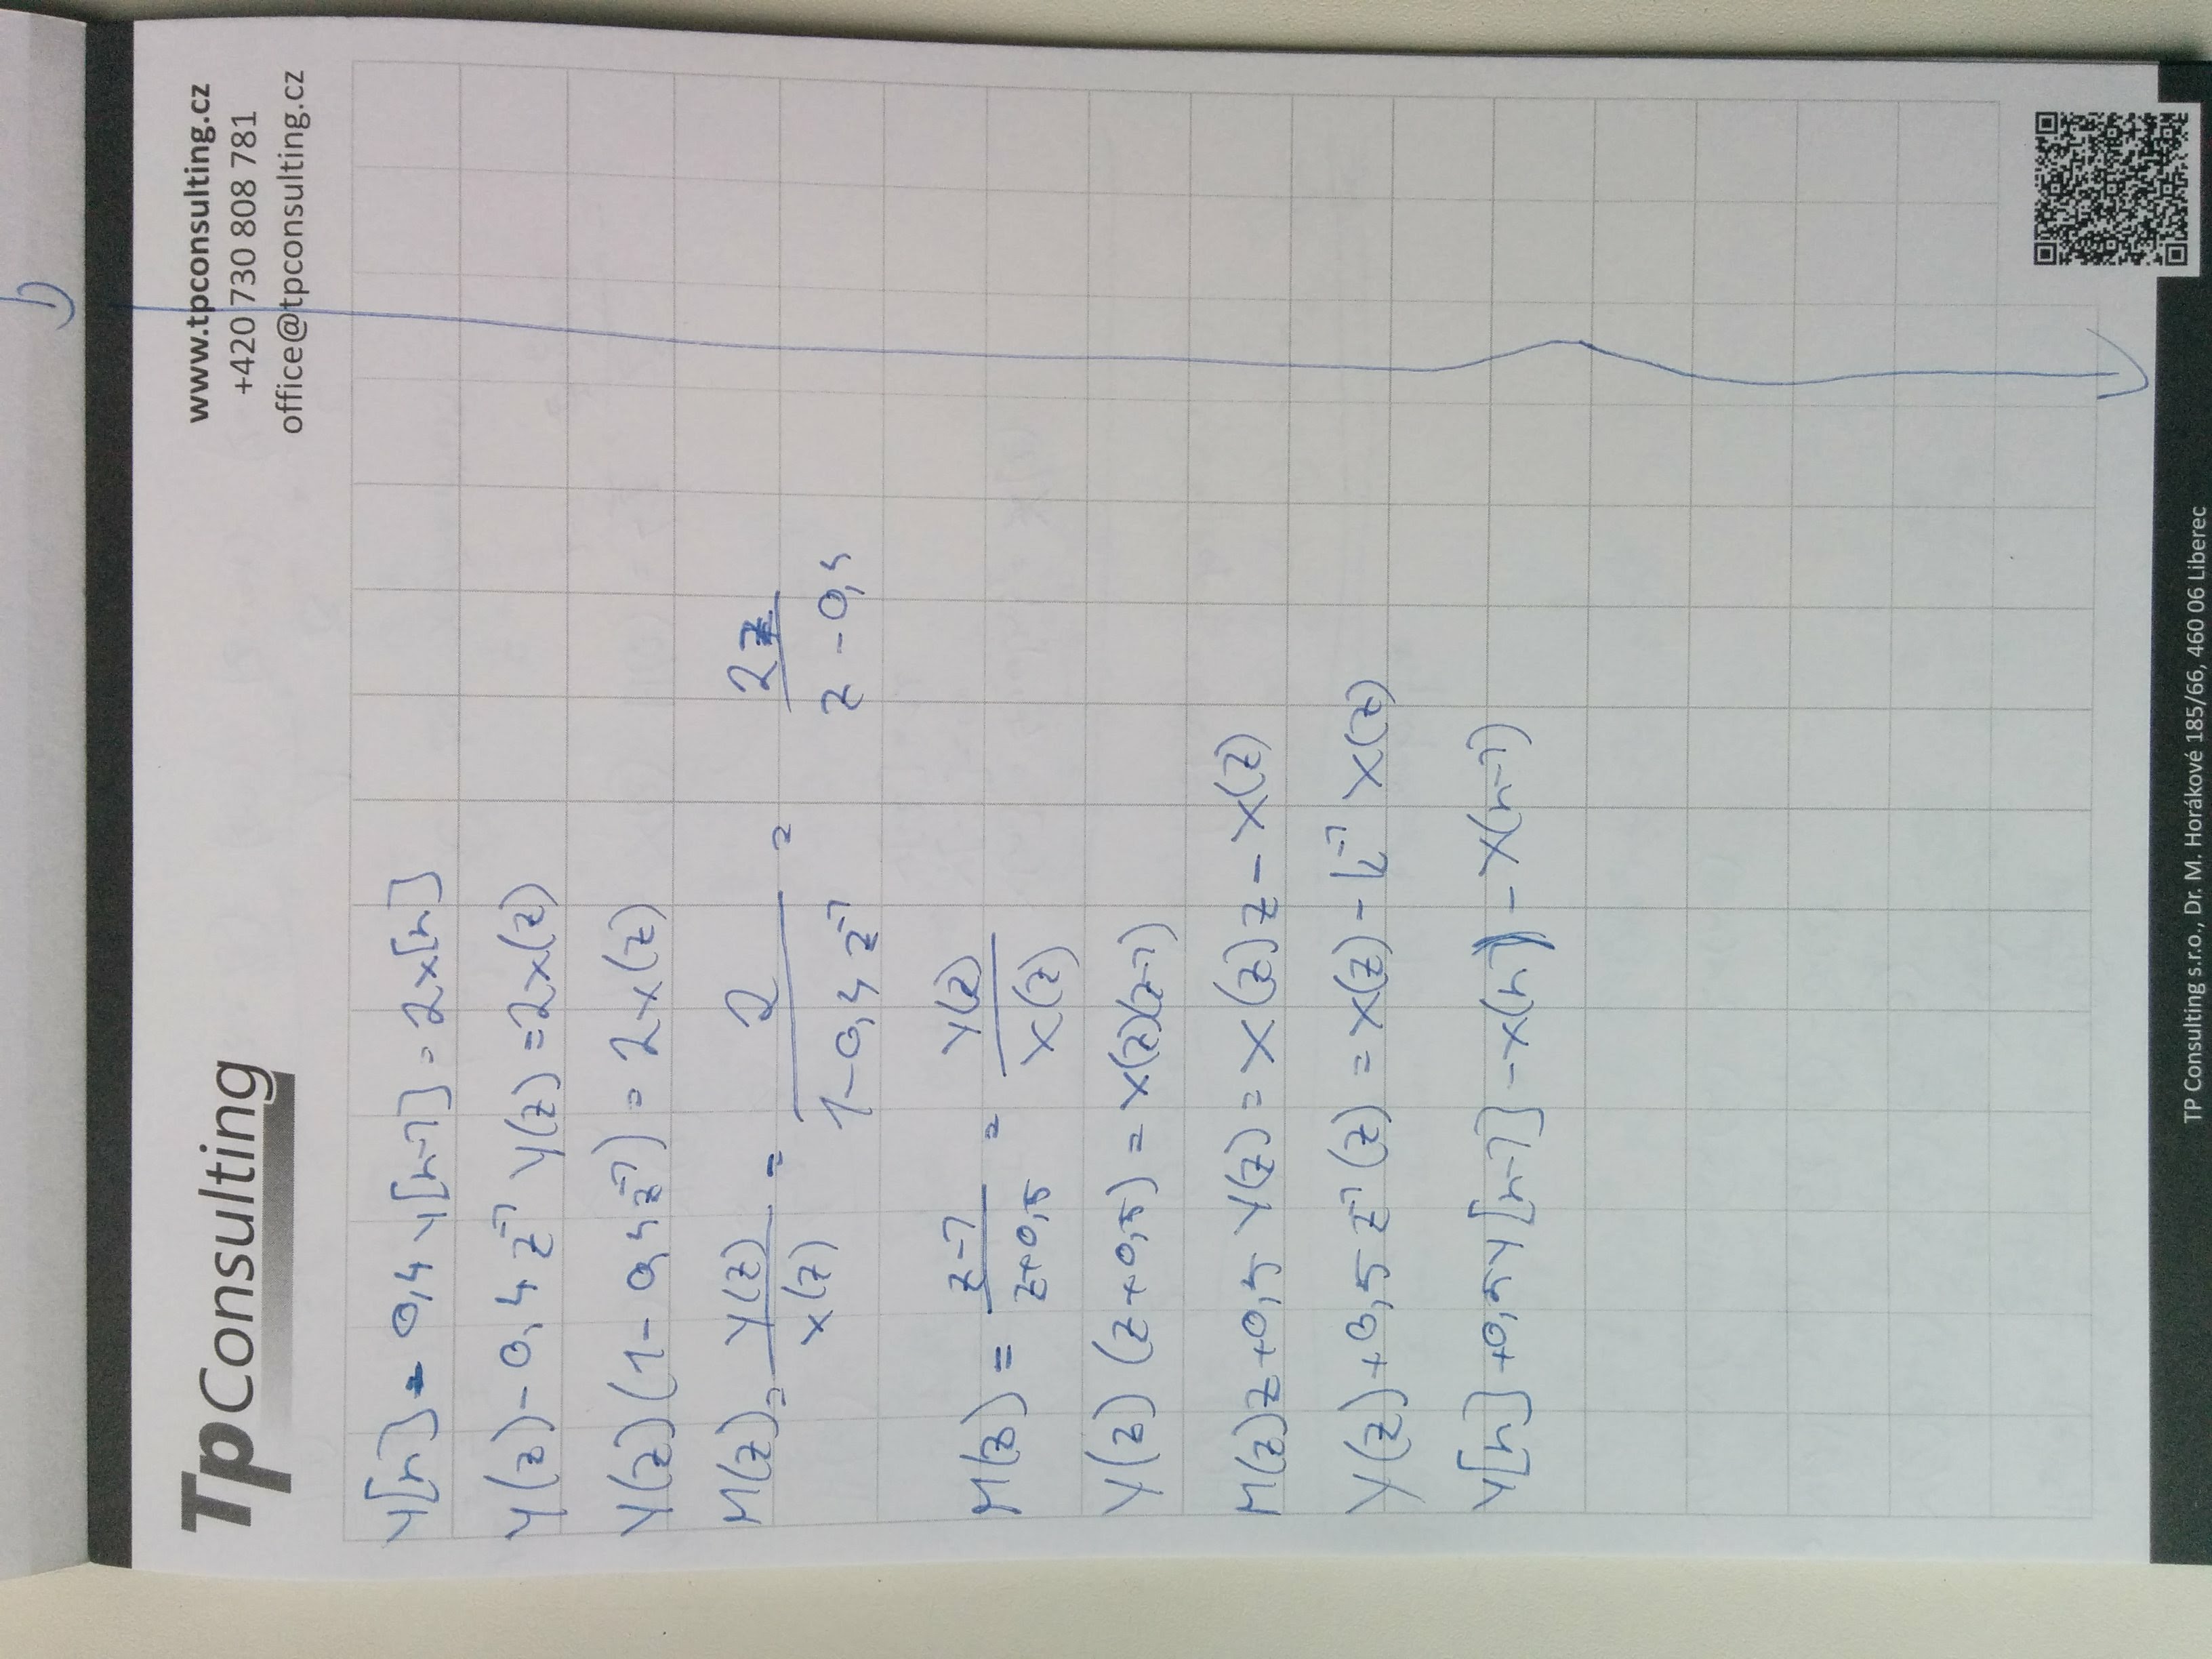 TpConsulting
www.tpconsulting.cz
+420 730 808 781
office@tpconsulting.cz
y[n] - 0,4 y[n-1] = 2x[n]
Y(z) - 0,4 z⁻¹ Y(z) = 2x(z)
Y(z) (1 - 0,4 z⁻¹) = 2x(z)
H(z) = Y(z)/X(z) = 2/(1 - 0,4 z⁻¹) = 2z/(z - 0,4)
H(z) = z-1/z+0,5 = Y(z)/X(z)
Y(z) (z + 0,5) = X(z)(z-1)
H(z)z + 0,5 Y(z) = X(z)z - X(z)
Y(z) + 0,5 z⁻¹(z) = X(z) - z⁻¹ X(z)
y[n] + 0,5 y[n-1] - x(n) - x(n-1)
TP Consulting s.r.o., Dr. M. Horákové 185/66, 460 06 Liberec